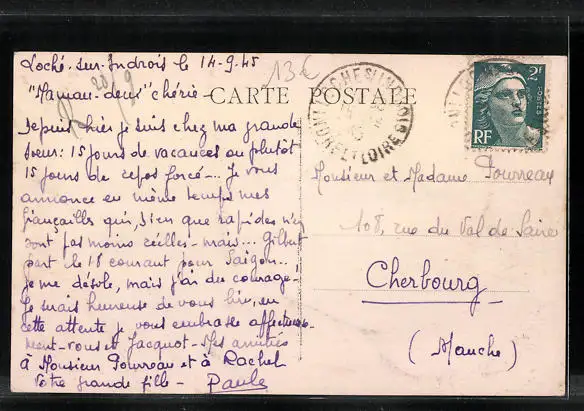 Loché-sur-Indrois le 14-9-45
13€
"Maman-deux" chérie -
R 20/9
CARTE POSTALE
Depuis hier je suis chez ma grande
soeur: 15 jours de vacances ou plutôt
15 jours de repos forcé... Je vous
annonce en même temps mes
fiançailles qui, bien que rapides n'en
sont pas moins réelles - mais... Gilbert
part le 18 courant pour Saïgon...
je me désole, mais j'ai du courage!
Je serais heureuse de vous lire, en
cette attente je vous embrasse affectueuse-
ment - vous et Jacquot - Mes amitiés
à Monsieur Pourreau et à Rachel
Votre grande fille - Paule
INDRE ET LOIRE
2F
POSTES
RF
Monsieur et Madame Pourreau
108, rue du Val de Saire
Cherbourg
(Manche)